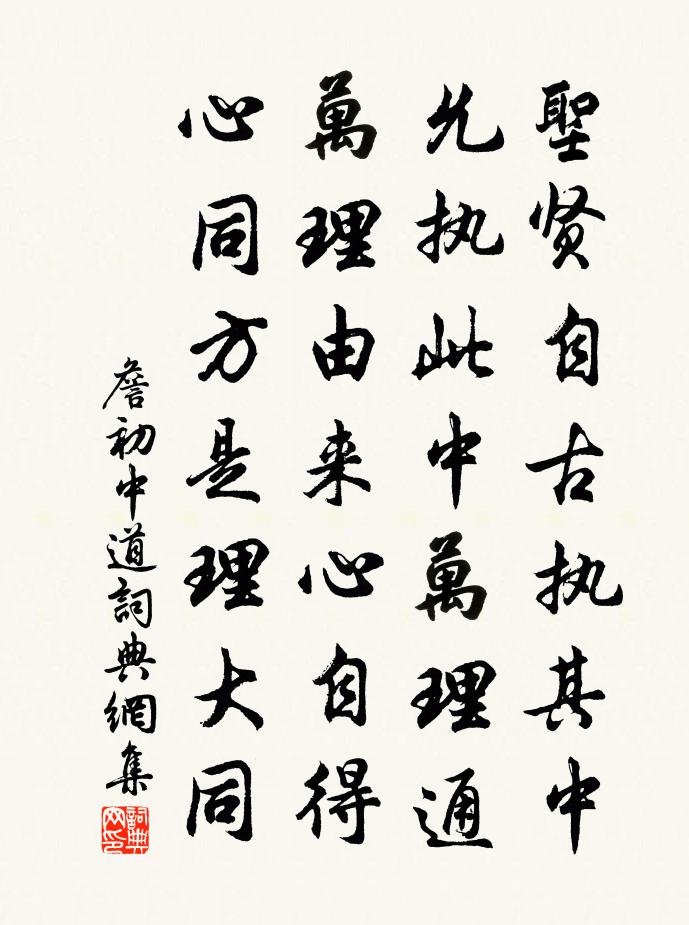 聖贤自古执其中
允执此中萬理通
萬理由来心自得
心同方是理大同
詹初中道詞典網集
詞典网印